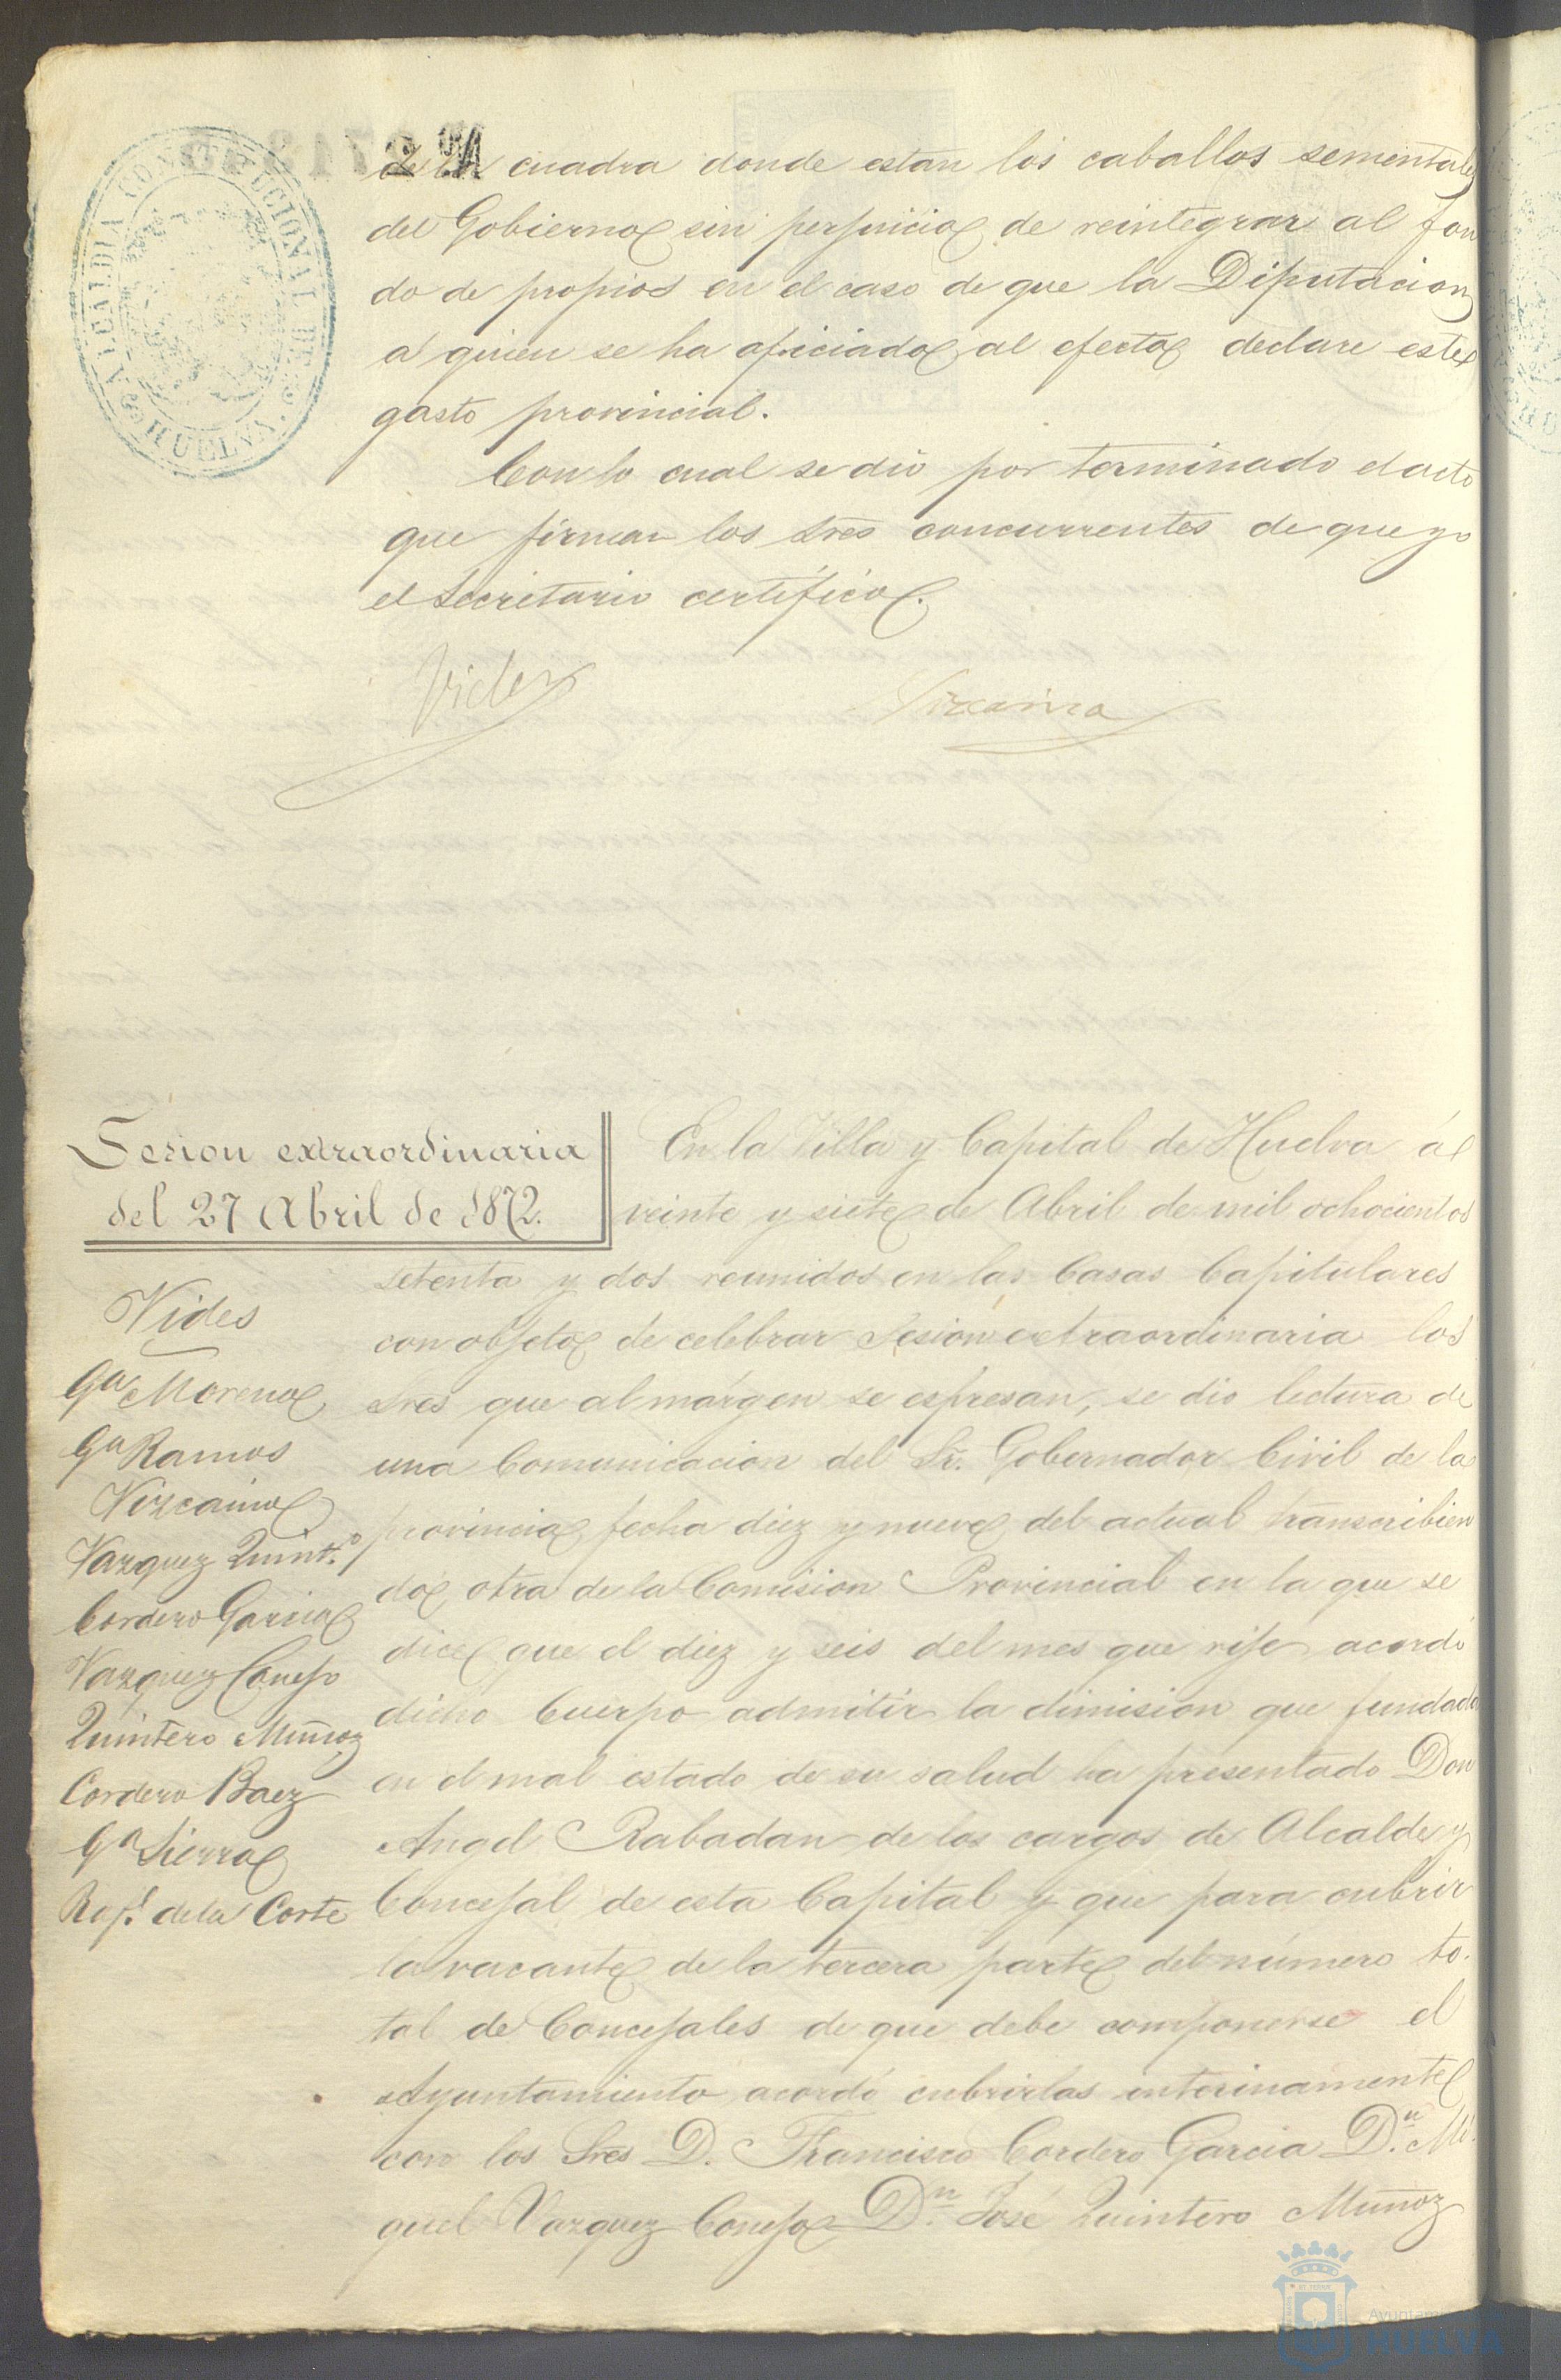 de la cuadra donde estan los caballos sementales
del Gobierno sin perjuicio de reintegrar al fon
do de propios en el caso de que la Diputacion
a quien se ha oficiado al efecto declare este
gasto provincial.
Con lo cual se dió por terminado el acto
que firman los Sres concurrentes de que yo
el Secretario certifico.
Vides
Vizcaino
ALCALDIA CONSTITUCIONAL DE HUELVA
Sesion extraordinaria
del 27 Abril de 1872.
Vides
Ga Moreno
Ga Ramos
Vizcaino
Vazquez Quint.o
Cordero Garcia
Vazquez Conejo
Quintero Muñoz
Cordero Baez
Ga Sierra
Raf.l de la Corte
En la Villa y Capital de Huelva á
veinte y siete de Abril de mil ochocientos
setenta y dos reunidos en las Casas Capitulares
con objeto de celebrar Sesion extraordinaria los
Sres que al márgen se espresan, se dio lectura de
una Comunicacion del Sr. Gobernador Civil de la
provincia fecha diez y nueve del actual transcribien
do otra de la Comision Provincial en la que se
dice que el diez y seis del mes que rije acordó
dicho Cuerpo admitir la dimision que fundada
en el mal estado de su salud ha presentado Don
Angel Rabadan de los cargos de Alcalde y
Concejal de esta Capital y que para cubrir
la vacante de la tercera parte del número to
tal de Concejales de que debe componerse el
Ayuntamiento acordó cubrirlas interinamente
con los Sres D. Francisco Cordero Garcia D.n Mi
guel Vazquez Conejo D.n José Quintero Muñoz
HUELVA